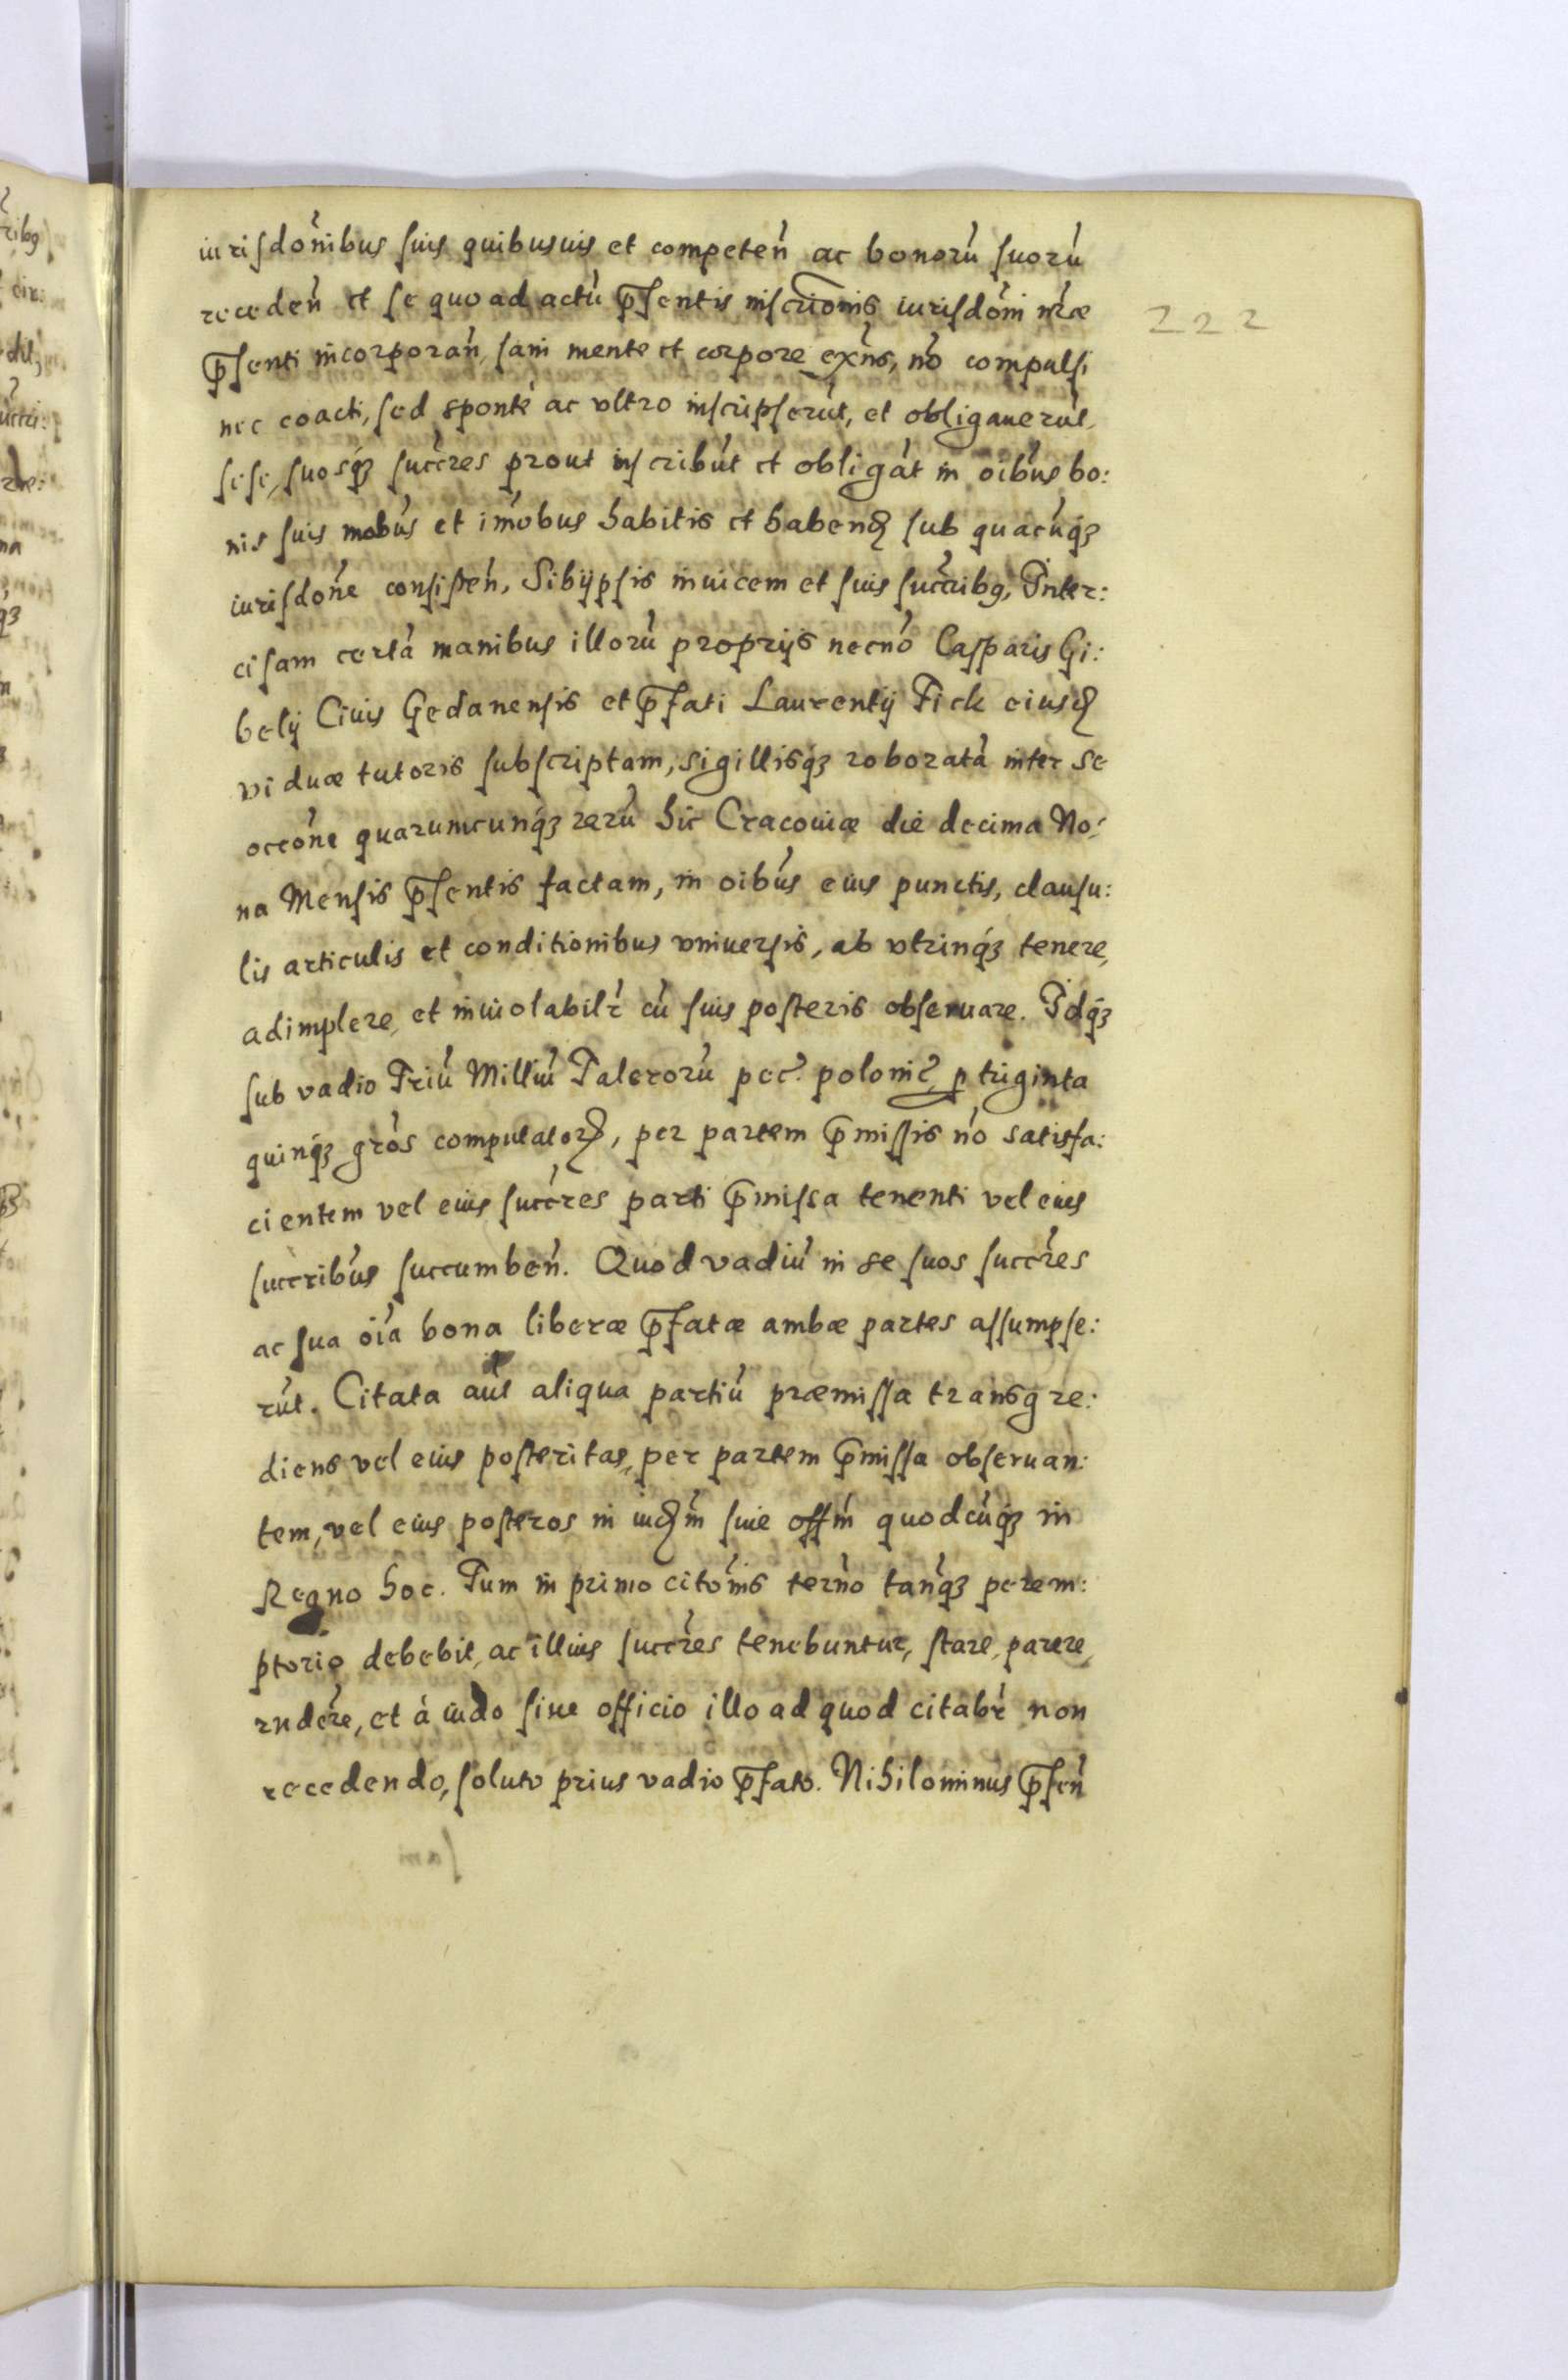 iurisdōnibus suis quibusuis et competeñ ac bonorū suorū
recedeñ et se quo ad actū p̄sentis inscriōnis iurisdōni n̄ræ
222
p̄senti incorporañ, sani mente et corpore exñs, nō compulsi
nec coacti, sed sponte ac vltro inscripserūt, et obligauerūt,
sese, suosq́ꝫ succ̄res prout inscribūt et obligāt in oībus bo:
nis suis mobūs et im̄obus habitis et habenꝫ sub quacūq́ꝫ
iurisdōne consisteñ, Sibijpsis inuicem et suis succ̄ribꝯ, Inter:
cisam certā manibus illorū proprijs necnō Casparis Gi:
belij Ciuis Gedanensis et p̄fati Laurentij Fick eiusꝫ
viduæ tutoris subscriptam, sigillisq́ꝫ roboratā inter se
occōne quarumcunq́ꝫ rerū hic Cracouiæ die decima No:
na Mensis p̄sentis factam, in oībus eius punctis, clausu:
lis articulis et conditionibus vniuersis, ab vtrinq́ꝫ tenere,
adimplere, et inuiolabilr̄ cū suis posteris obseruare. Idq́ꝫ
sub vadio Triū Milliū Talerorū pec̄. polonic̄, ꝑ triginta
quinq́ꝫ grōs computatorꝫ, per partem p̄missis nō satisfa:
cientem vel eius succ̄res parti p̄missa tenenti vel eius
succribūs succumbeñ. Quod vadiū in se suos succ̄res
ac sua oīa bona liberæ p̄fatæ ambæ partes assumpse:
rūt. Citata aūt aliqua partiū præmissa transgre:
diens vel eius posteritas, per partem p̄missa obseruan:
tem, vel eius posteros in iuꝫm̄ siue offm̄ quodcūq́ꝫ in
Regno hoc. Tum in primo citōnis term̄o tanq́ꝫ perem:
ptorio debebit, ac illius succ̄res tenebuntur, stare, parere,
rndēre, et à iudō siue officio illo ad quod citabr̄ non
recedendo, soluto prius vadio p̄fato. Nihilominus p̄señ